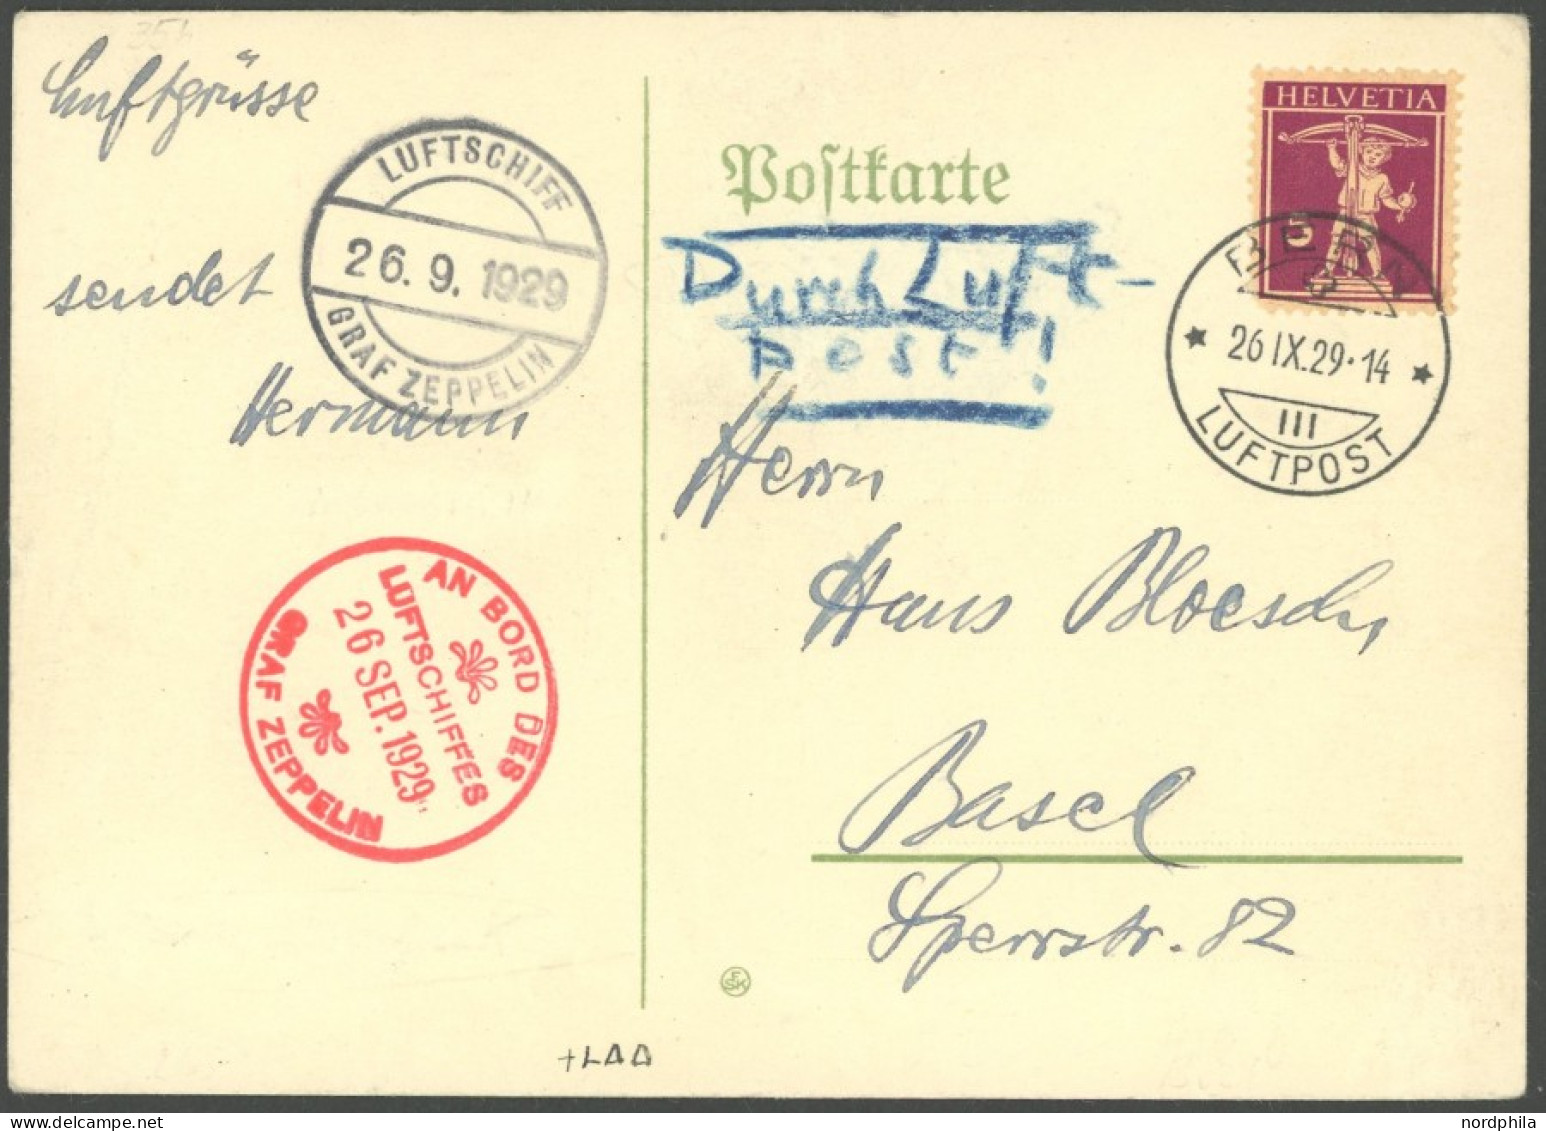 Luftgrüsse
sendet
Hermann
LUFTSCHIFF
26.9.1929
GRAF ZEPPELIN
AN BORD DES
LUFTSCHIFFES
26 SEP. 1929
GRAF ZEPPELIN
Poſtkarte
Durch Luft-
post!
HELVETIA
5
BERN
26 IX.29·14
III
LUFTPOST
Herrn
Hans Bloesch,
Basel
Sperrstr. 82
FSK
nordphila